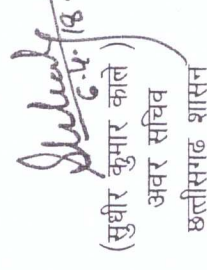 6.4.18
(सुधीर कुमार काले)
अवर सचिव
छत्तीसगढ़ शासन